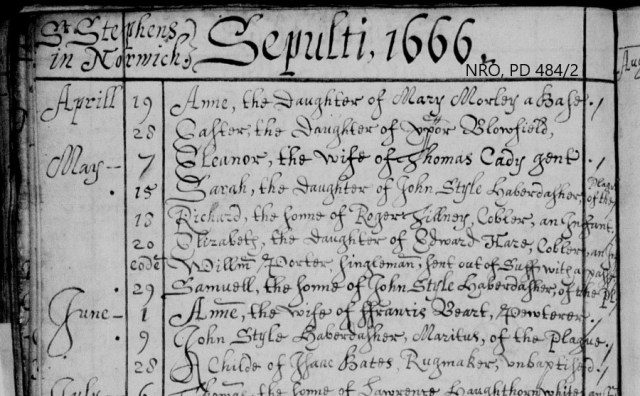 St Stephens
in Norwich
Sepulti, 1666.
NRO, PD 484/2
Aprill 19 Anne, the Daughter of Mary Morley a Base.
28 Easter, the Daughter of Xpōr Blowfield,
May 7 Eleanor, the wife of Thomas Cady gent.
15 Sarah, the Daughter of John Style Haberdasher, of the Plague
18 Richard, the sonne of Roger Sidney, Cobler, an Infant,
20 Elizabeth, the daughter of Edward Hare, Cobler, an In
eodē Willm Porter, singleman, sent out of Suff with a passe
29 Samuell, the sonne of John Style Haberdasher, of the Pl
June 1 Anne, the wife of ffrancis Beart, Pewterer.
9 John Style Haberdasher, Maritus, of the Plague
28 A Childe of Isaac Bates, Rugmaker, unbaptised.
July 6 Thomas, the sonne of Lawrence